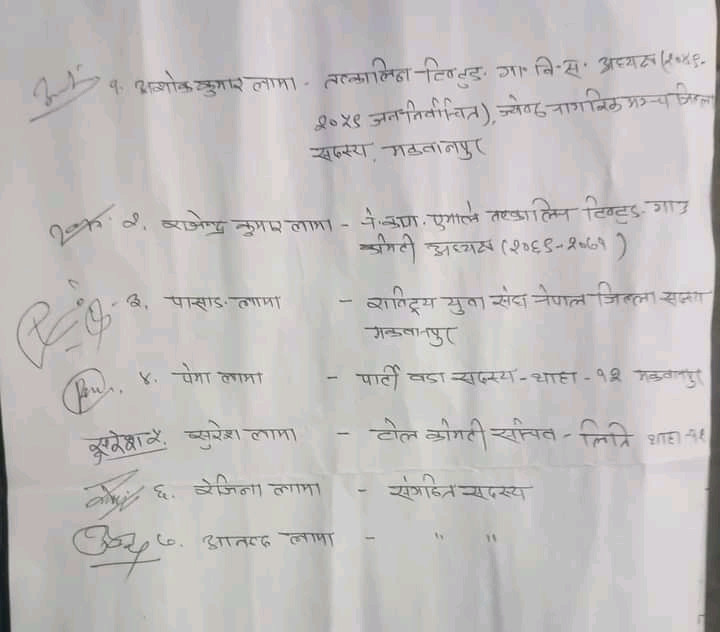 १. अशोक कुमार लामा - तत्कालिन टिष्टुङ गा. वि. स. अध्यक्ष (२०४९-
२०५९ जननिर्वाचित), ज्येष्ठ नागरिक मञ्च जिल्ला
सदस्य, मकवानपुर
२. राजेन्द्र कुमार लामा - ने.कपा. एमाले तत्कालिन टिष्टुङ गाउ
कमिटी अध्यक्ष (२०६९-२०७१)
३. पासाङ लामा - राष्ट्रिय युवा संघ नेपाल जिल्ला सदस्य
मकवानपुर
४. पेमा लामा - पार्टी वडा सदस्य - थाहा - १२ मकवानपुर
सुरेश ५. सुरेश लामा - टोल कमिटी सचिव - थाहा
६. रेजिना लामा - संगठित सदस्य
७. आनन्द लामा - " "